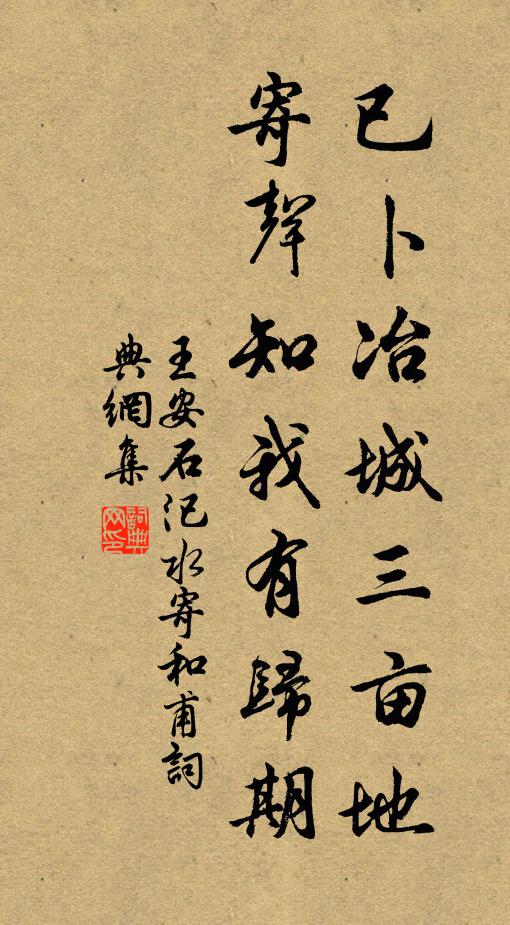 已卜冶城三亩地
寄聲知我有歸期
王安石汜水寄和甫詞
典網集
詞典
网印